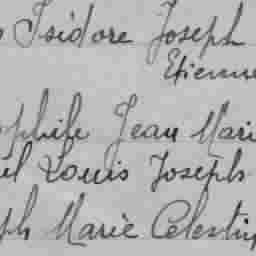 Isidore Joseph
Etienne
ophile Jean Mari
el Louis Joseph
ph Marie Celestin